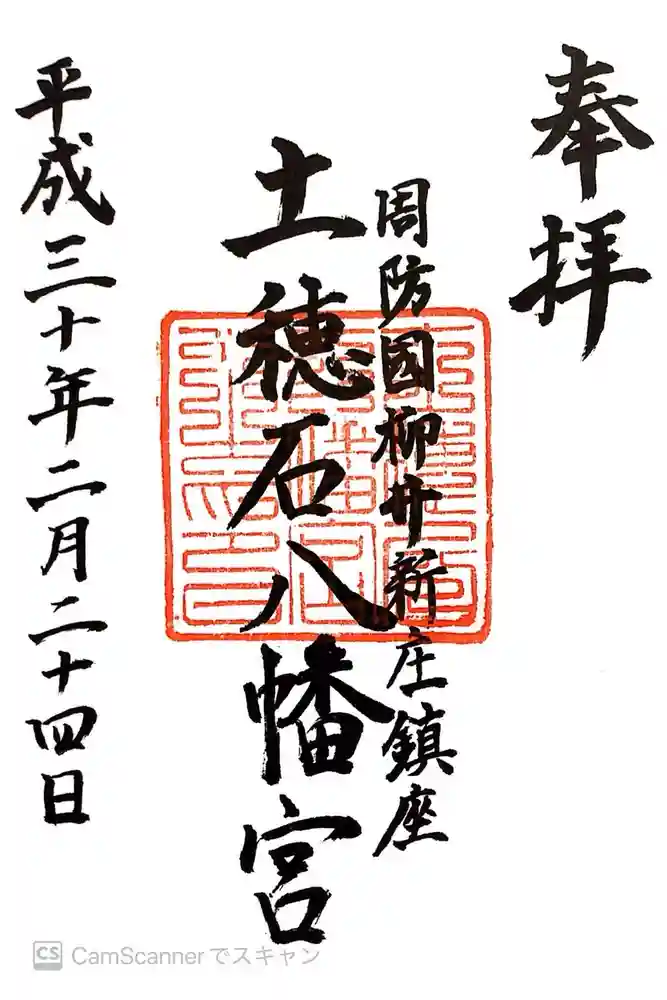 奉拝
周防國柳井新庄鎮座
土穂石八幡宮
平成三十年二月二十四日
CS CamScannerでスキャン